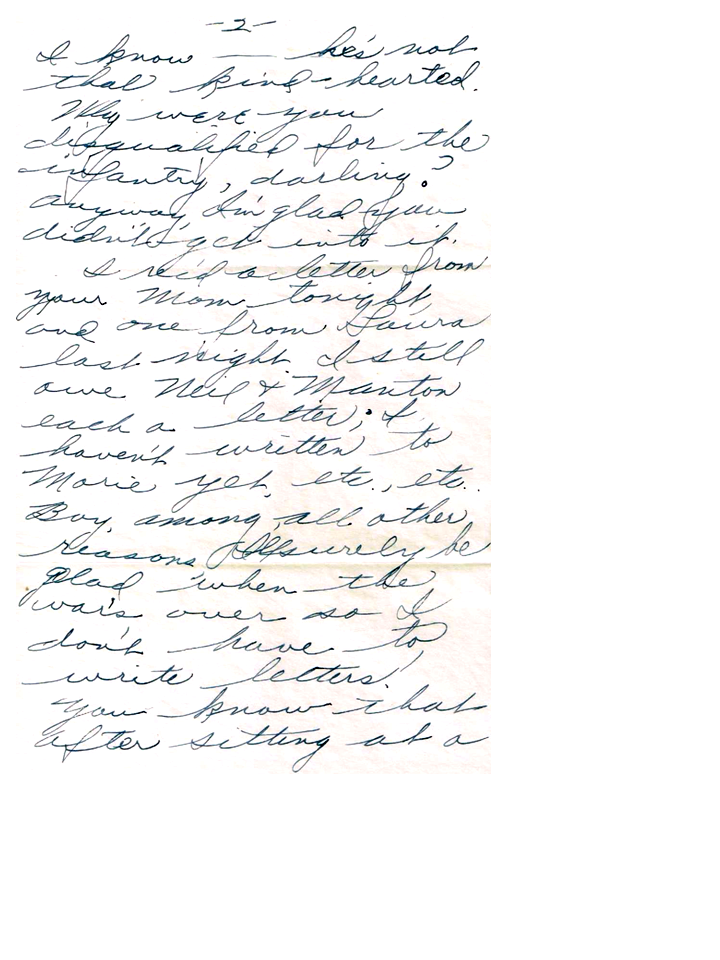 -2-
I know — he's not
that kind-hearted.
Why were you
disqualified for the
infantry, darling?
Anyway, I'm glad you
didn't get into it.
I rec'd a letter from
your Mom tonight,
and one from Laura
last night. I still
owe Neil & Manton
each a letter; I
haven't written to
Marie yet, etc., etc..
Boy, among all other
reasons I'll surely be
glad when the
war's over so I
don't have to
write letters!
You know that
after sitting at a